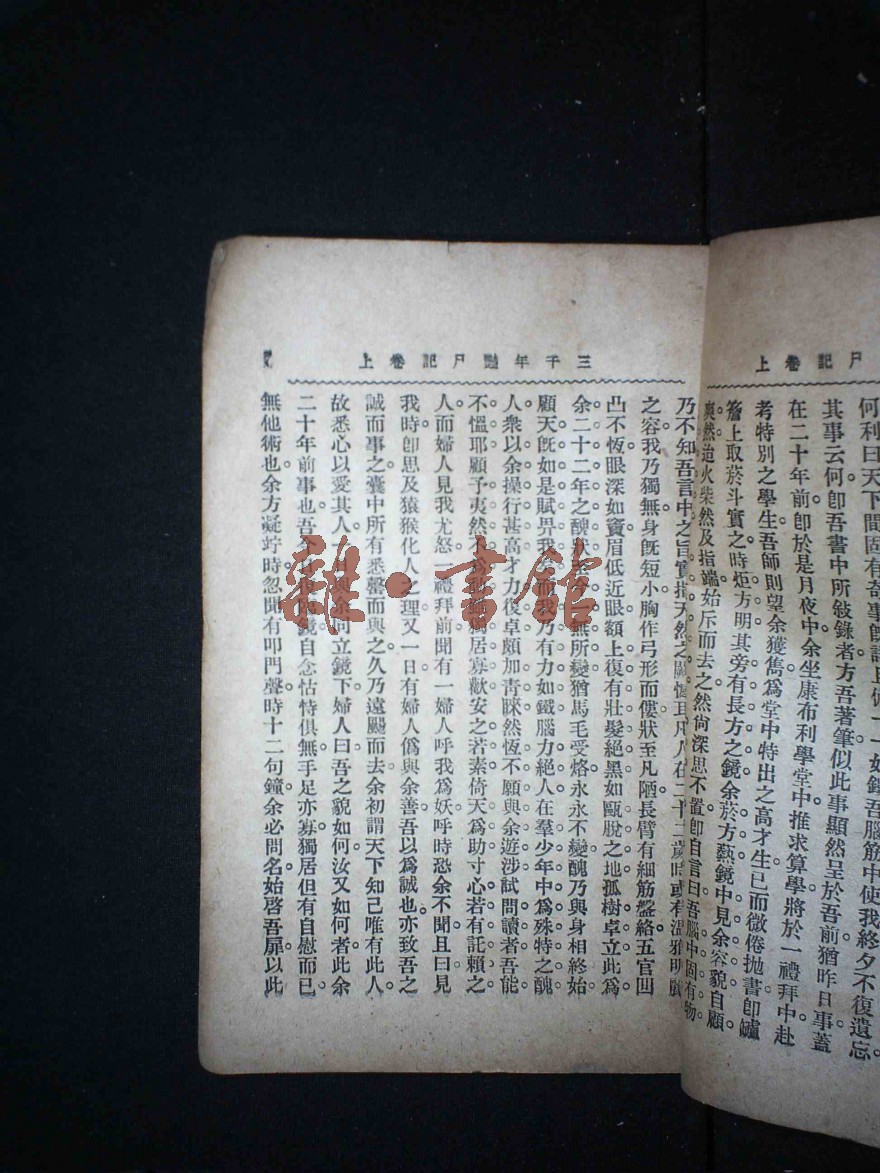 尸記卷上
何利曰天下間固有奇事旣請且
一如鑄吾腦筋中使我終夕不復遺忘
其事云何。卽吾書中所敍錄者方吾著筆似此事顯然呈於吾前猶昨日事蓋
在二十年前卽於是月夜中余坐康布利學堂中推求算學將於一禮拜中赴
考特別之學生吾師則望余獲雋爲堂中特出之高才生已而微倦拋書卽鑪
簷上取菸斗實之時炬方明其旁有長方之鏡余菸方爇鏡中見余容貌自顧
爽然迨火柴然及指端始斥而去之然尙深思不置卽自言曰吾腦中固有物
三千年艷尸記卷上
乃不知吾言中之旨實指天然之
凡人在二十二歲時或有溫雅明
之容我乃獨無身旣短小胸作弓形而僂狀至凡陋長臂有細筋盤絡五官凹
凸不恆眼深如竇眉低近眼額上復有壯髮絕黑如甌脫之地孤樹卓立此爲
余二十二年之醜狀至今一無所變猶馬毛受烙永永不變醜乃與身相終始
顧天旣如是賦畀我
而我乃有力如鐵腦力絕人在羣少年中爲殊特之醜
人衆以余操行甚高才力復卓頗加靑睞然恆不願與余遊涉試問讀者吾能
不慍耶顧予夷然
獨居寡歡安之若素倚天爲助寸心若有託賴之
人而婦人見我尤怒一禮拜前聞有一婦人呼我爲妖呼時恐余不聞且曰見
我時卽思及猿猴化人之理又一日有婦人僞與余善吾以爲誠也亦致吾之
誠而事之囊中所有悉罄而與之久乃遠颺而去余初謂天下知己唯有此人
故悉心以愛其人一日與余同立鏡下婦人曰吾之貌如何汝又如何者此余
二十年前事也吾今
鏡自念怙恃俱無手足亦寡獨居但有自慰而已
無他術也余方凝竚時忽聞有叩門聲時十二句鐘余必問名始啓吾扉以此